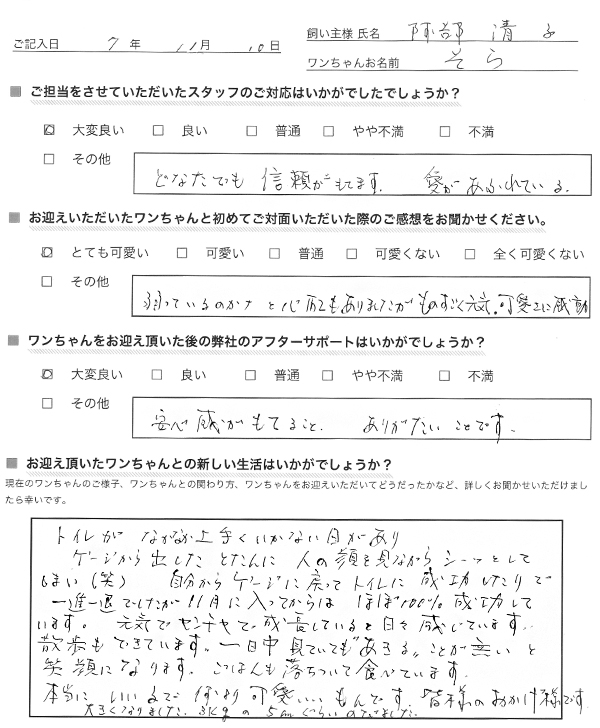 ご記入日 7年 11月 10日
飼い主様 氏名 阿部 清子
ワンちゃんお名前 そら
■ ご担当をさせていただいたスタッフのご対応はいかがでしたでしょうか？
☑ 大変良い □ 良い □ 普通 □ やや不満 □ 不満
□ その他
どなたでも 信頼がもてます. 愛があふれている.
■ お迎えいただいたワンちゃんと初めてご対面いただいた際のご感想をお聞かせください。
☑ とても可愛い □ 可愛い □ 普通 □ 可愛くない □ 全く可愛くない
□ その他
弱っているのかナ と心配もありましたが ものすごく元気.可愛さに感動
■ ワンちゃんをお迎え頂いた後の弊社のアフターサポートはいかがでしょうか？
☑ 大変良い □ 良い □ 普通 □ やや不満 □ 不満
□ その他
安心感がもてること. ありがたいことです.
■ お迎え頂いたワンちゃんとの新しい生活はいかがでしょうか？
現在のワンちゃんのご様子、ワンちゃんとの関わり方、ワンちゃんをお迎えいただいてどうだったかなど、詳しくお聞かせいただけまし
たら幸いです。
トイレが なかなか上手くいかない日があり
ゲージから出したとたんに 人の顔を見ながらシーッとして
しまい(笑) 自分からゲージに戻ってトイレに 成功したりで
一進一退でしたが 11月に入ってからは ほぼ100% 成功して
います. 元気でヤンチャで.成長していると日々感じています.
散歩もできています. 一日中見ていても"あきる"ことが無いと
笑顔になります. ごはんも落ちついて食べています.
本当に いいるで 何より可愛い... もんです. 皆様のおかげ様です
大きくなりました. 3kgの 5mmぐらい のびました.